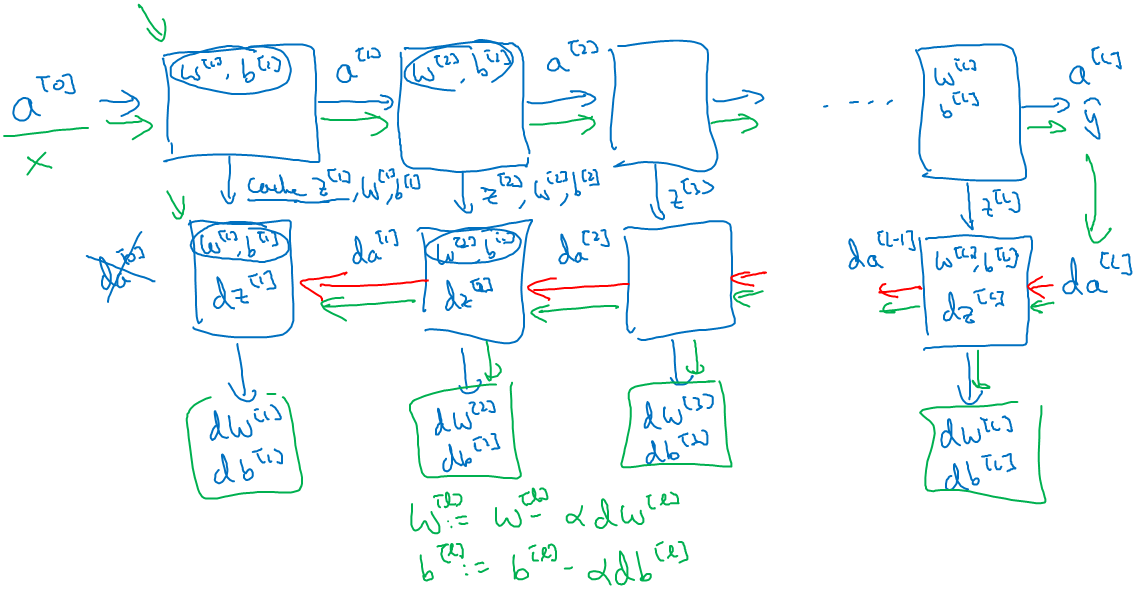 a^[0]
x
w^[1], b^[1]
a^[1]
w^[2], b^[2]
a^[2]
....
w^[L]
b^[L]
a^[L]
ŷ
cache z^[1], w^[1], b^[1]
z^[2], w^[2], b^[2]
z^[3]
z^[L]
da^[0]
w^[1], b^[1]
dz^[1]
da^[1]
w^[2], b^[2]
dz^[2]
da^[2]
da^[L-1]
w^[L], b^[L]
dz^[L]
da^[L]
dw^[1]
db^[1]
dw^[2]
db^[2]
dw^[3]
db^[3]
dw^[L]
db^[L]
w^[l] := w^[l] - αdw^[l]
b^[l] := b^[l] - αdb^[l]